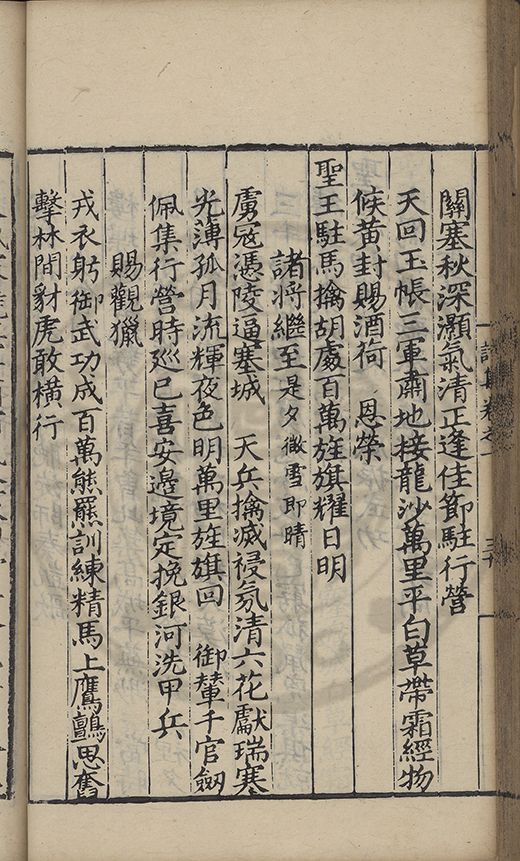 關塞秋深灝氣清正逢佳節駐行營
天回玉帳三軍肅地接龍沙萬里平白草帶霜經物
候黃封賜酒荷　恩榮
聖王駐馬擒胡處百萬旌旗耀日明
諸將繼至是夕微雪即晴
虜寇憑陵逼塞城　天兵擒滅祲氛清六花獻瑞塞
光薄孤月流輝夜色明萬里旌旗回　御輦千官劔
佩集行營時廵已喜安邊境定挽銀河洗甲兵
賜觀獵
戎衣躬御武功成百萬熊羆訓練精馬上鷹鸇思奮
擊林間豺虎敢橫行